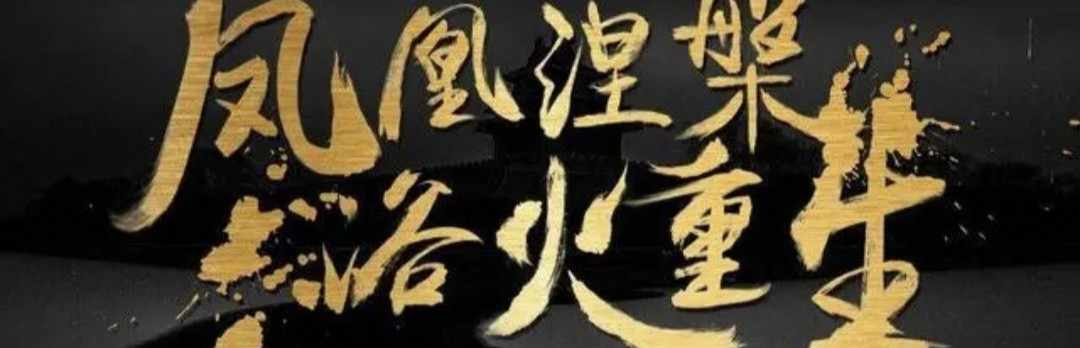 凤凰涅槃
浴火重生